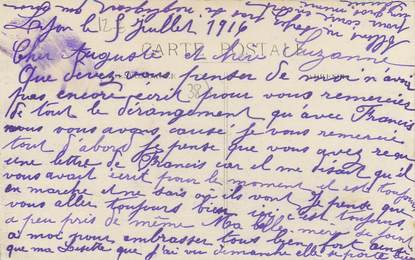 Lyon le 5 Juillet 1916
CARTE POSTALE
Cher Auguste et chère Suzanne
Que devez vous penser de moi n'avoir
pas encore écrit pour vous remercier
de tout le dérangement qu'avec Francis
nous vous avons causé je vous remercie
tout d'abord je pense que vous avez reçu
une lettre de Francis car il me disait qu'il
vous avait écrit pour le moment il est toujours
en marche et ne sais où ils vont je pense que
vous aller toujours bien ici c'est toujours
a peu près de même Ma belle mère se joint
a moi pour embrasser tous bien fort ainsi
que ma Lisette que j'ai vu dimanche elle se porte